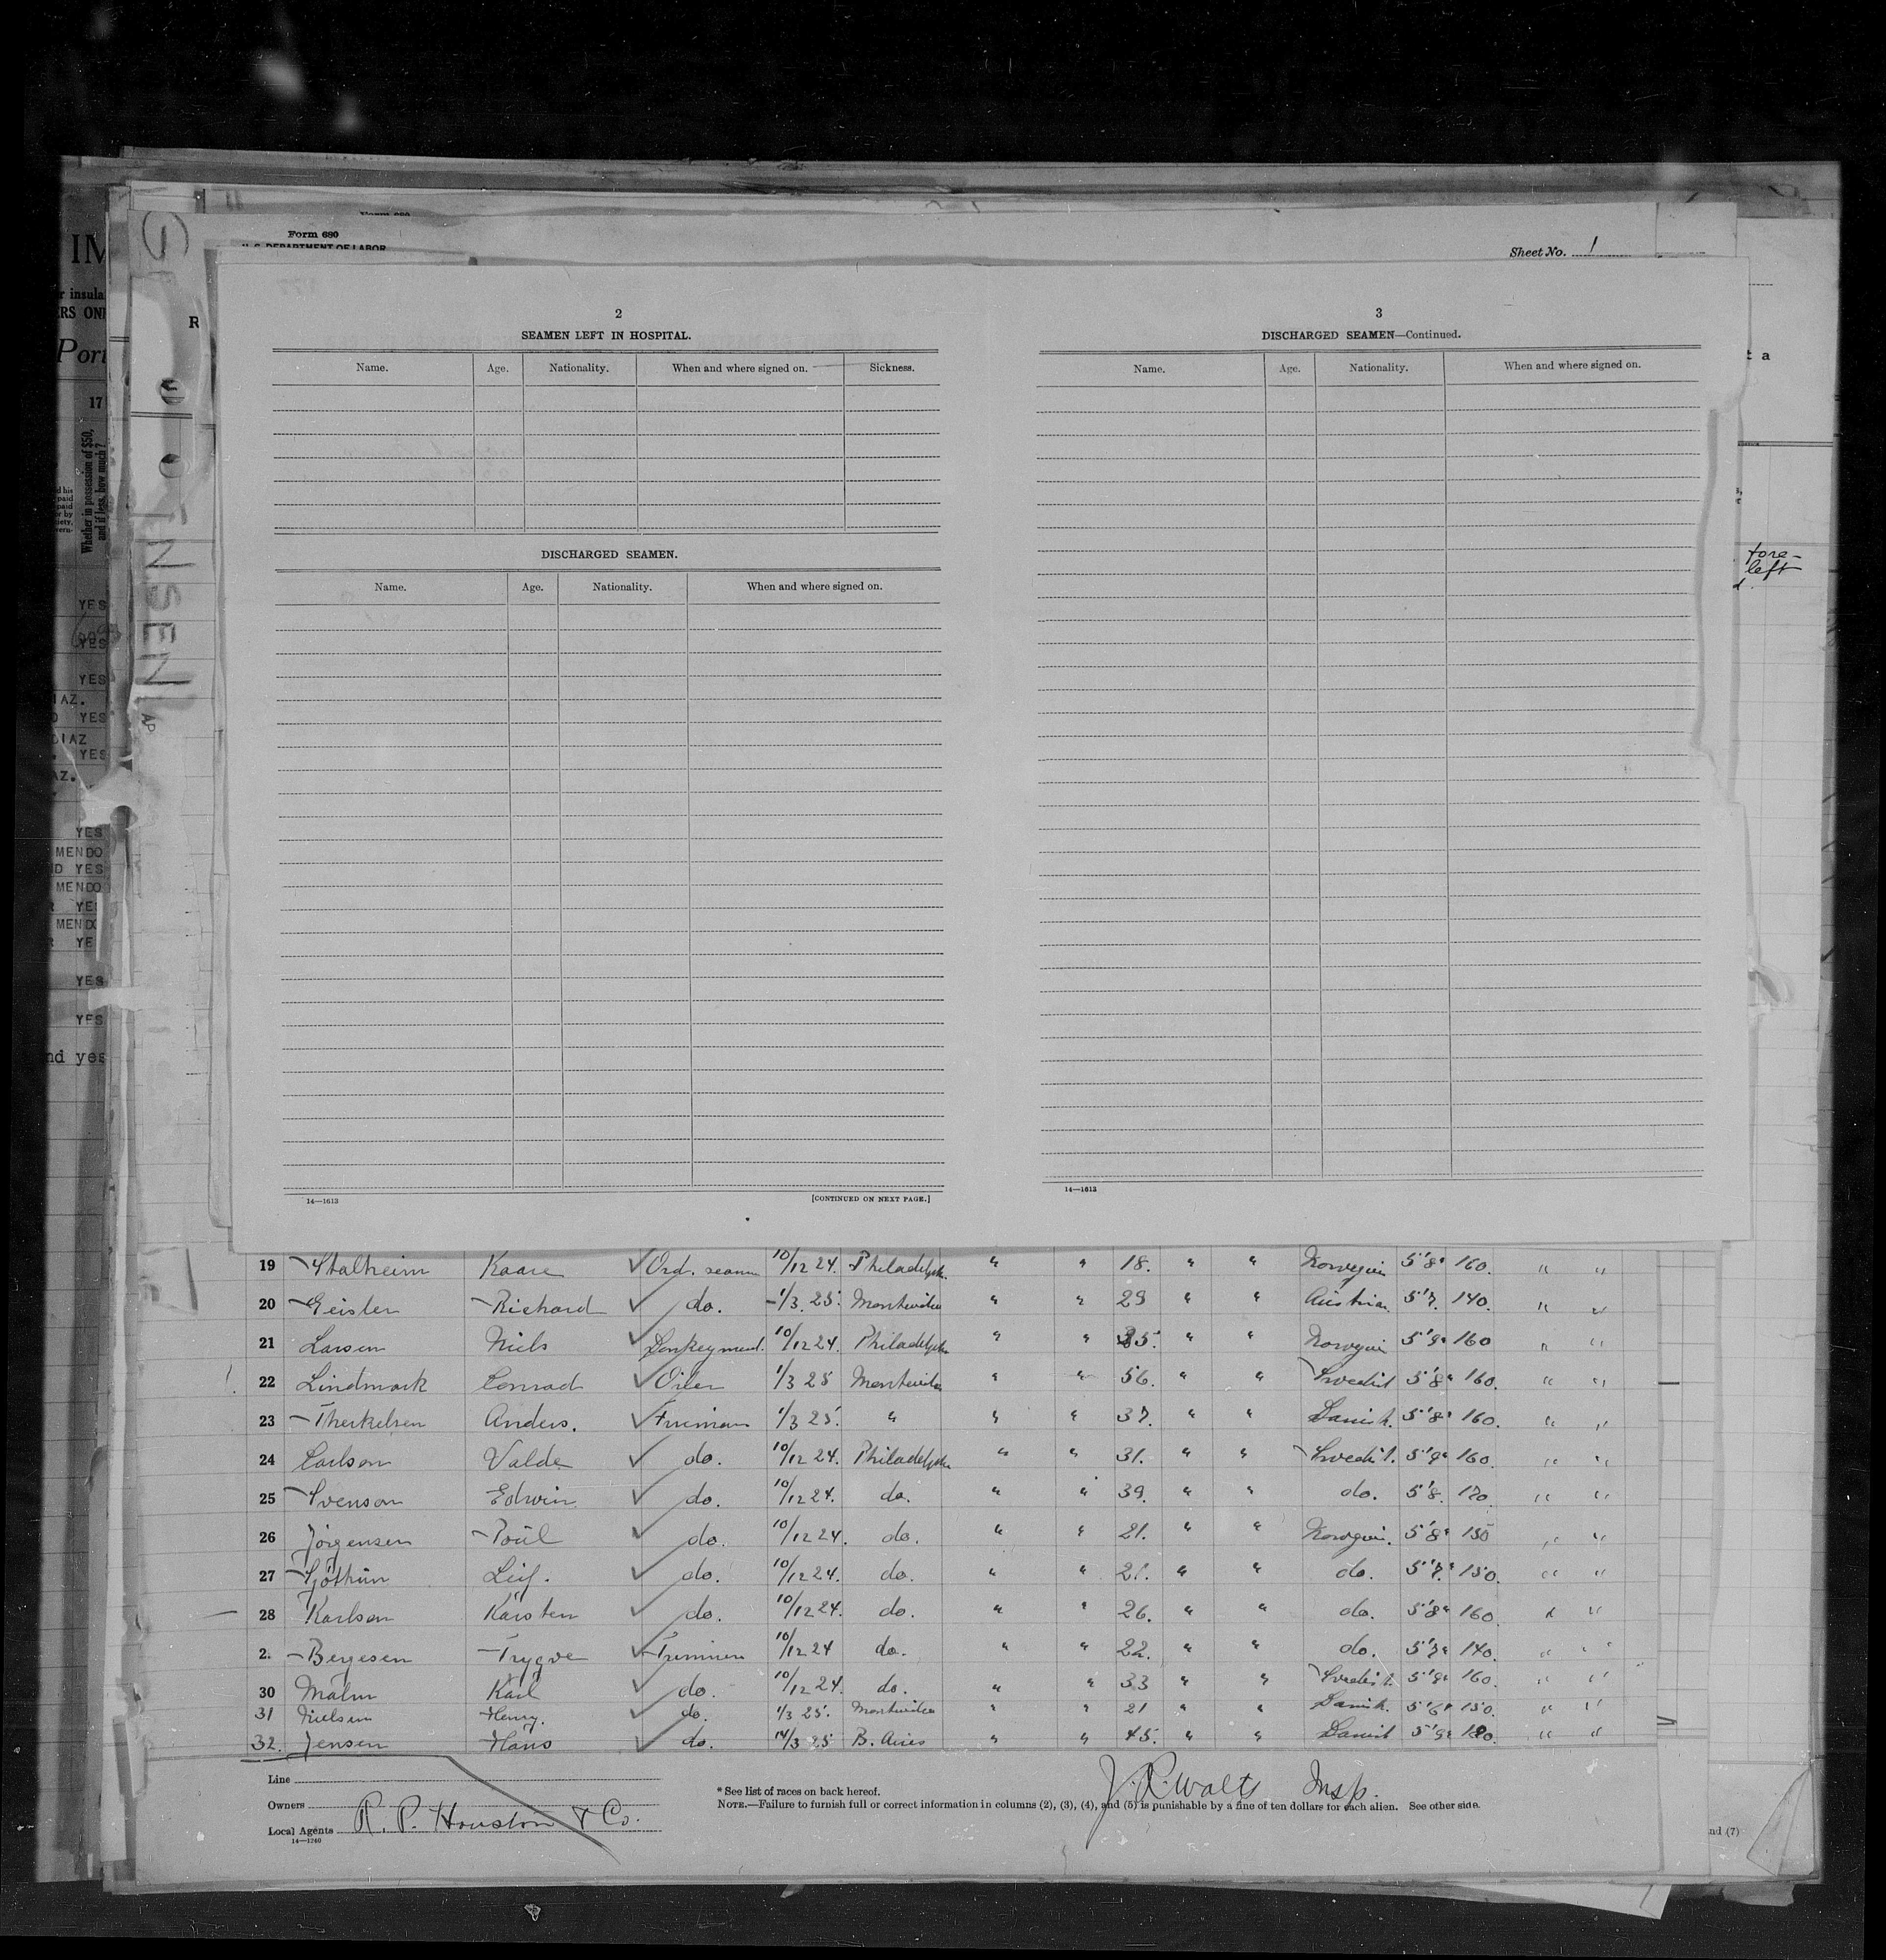 Form 680
U. S. DEPARTMENT OF LABOR
Sheet No. 1
2
SEAMEN LEFT IN HOSPITAL.
Name. Age. Nationality. When and where signed on. Sickness.
DISCHARGED SEAMEN.
Name. Age. Nationality. When and where signed on.
14—1613 [CONTINUED ON NEXT PAGE.]
3
DISCHARGED SEAMEN—Continued.
Name. Age. Nationality. When and where signed on.
14—1613
17
Whether in possession of $50, and if less, how much?
YES
YES
YES
IAZ.
YES
DIAZ
YES
AZ.
YES
MENDO
YES
MENDO
MENDO
YES
YES
nd yes
INSEN
fore-
left
19 Stalheim Kaare Ord. seam 10/12 24. Philadelph. " " 18. " " Norwegian 5'8" 160. " "
20 Geisler Richard do. 1/3. 25. Montevideo " " 29 " " Austrian 5'7. 140. " "
21 Larsen Niels Donkeyman. 10/12 24. Philadelphia " " 35. " " Norwegian 5'9" 160 " "
22 Lindmark Conrad Oiler 1/3 25 Montevideo " " 56. " " Swedish 5'8" 160. " "
23 Therkelsen Anders. Fireman 1/3 25. " " " 37. " " Danish. 5'8" 160. " "
24 Carlson Valde do. 10/12 24. Philadelphia " " 31. " " Swedish. 5'9" 160. " "
25 Svenson Edwin do. 10/12 24. do. " " 39. " " do. 5'8. 170. " "
26 Jörgensen Poul do. 10/12 24. do. " " 21. " " Norwegian. 5'8" 150 " "
27 Leif. do. 10/12 24. do. " " 21. " " do. 5'7." 150. " "
28 Karlsen Karsten do. 10/12 24. do. " " 26. " " do. 5'8" 160. " "
2. Bergesen Trygve Trimmer 10/12 24 do. " " 22. " " do. 5'7" 140. " "
30 Malm Karl do. 10/12 24. do. " " 33 " " Swedish. 5'9" 160. " "
31 Nielsen Henry. do. 1/3 25. Montevideo " " 21 " " Danish. 5'6" 150. " "
32. Jensen Hans do. 14/3 25 B. Aires " " 45. " " Danish 5'9" 180. " "
Line
Owners
Local Agents R. P. Houston & Co.
14—1240
* See list of races on back hereof.
J. R. Walts Insp.
NOTE.—Failure to furnish full or correct information in columns (2), (3), (4), and (5) is punishable by a fine of ten dollars for each alien. See other side.
nd (7)